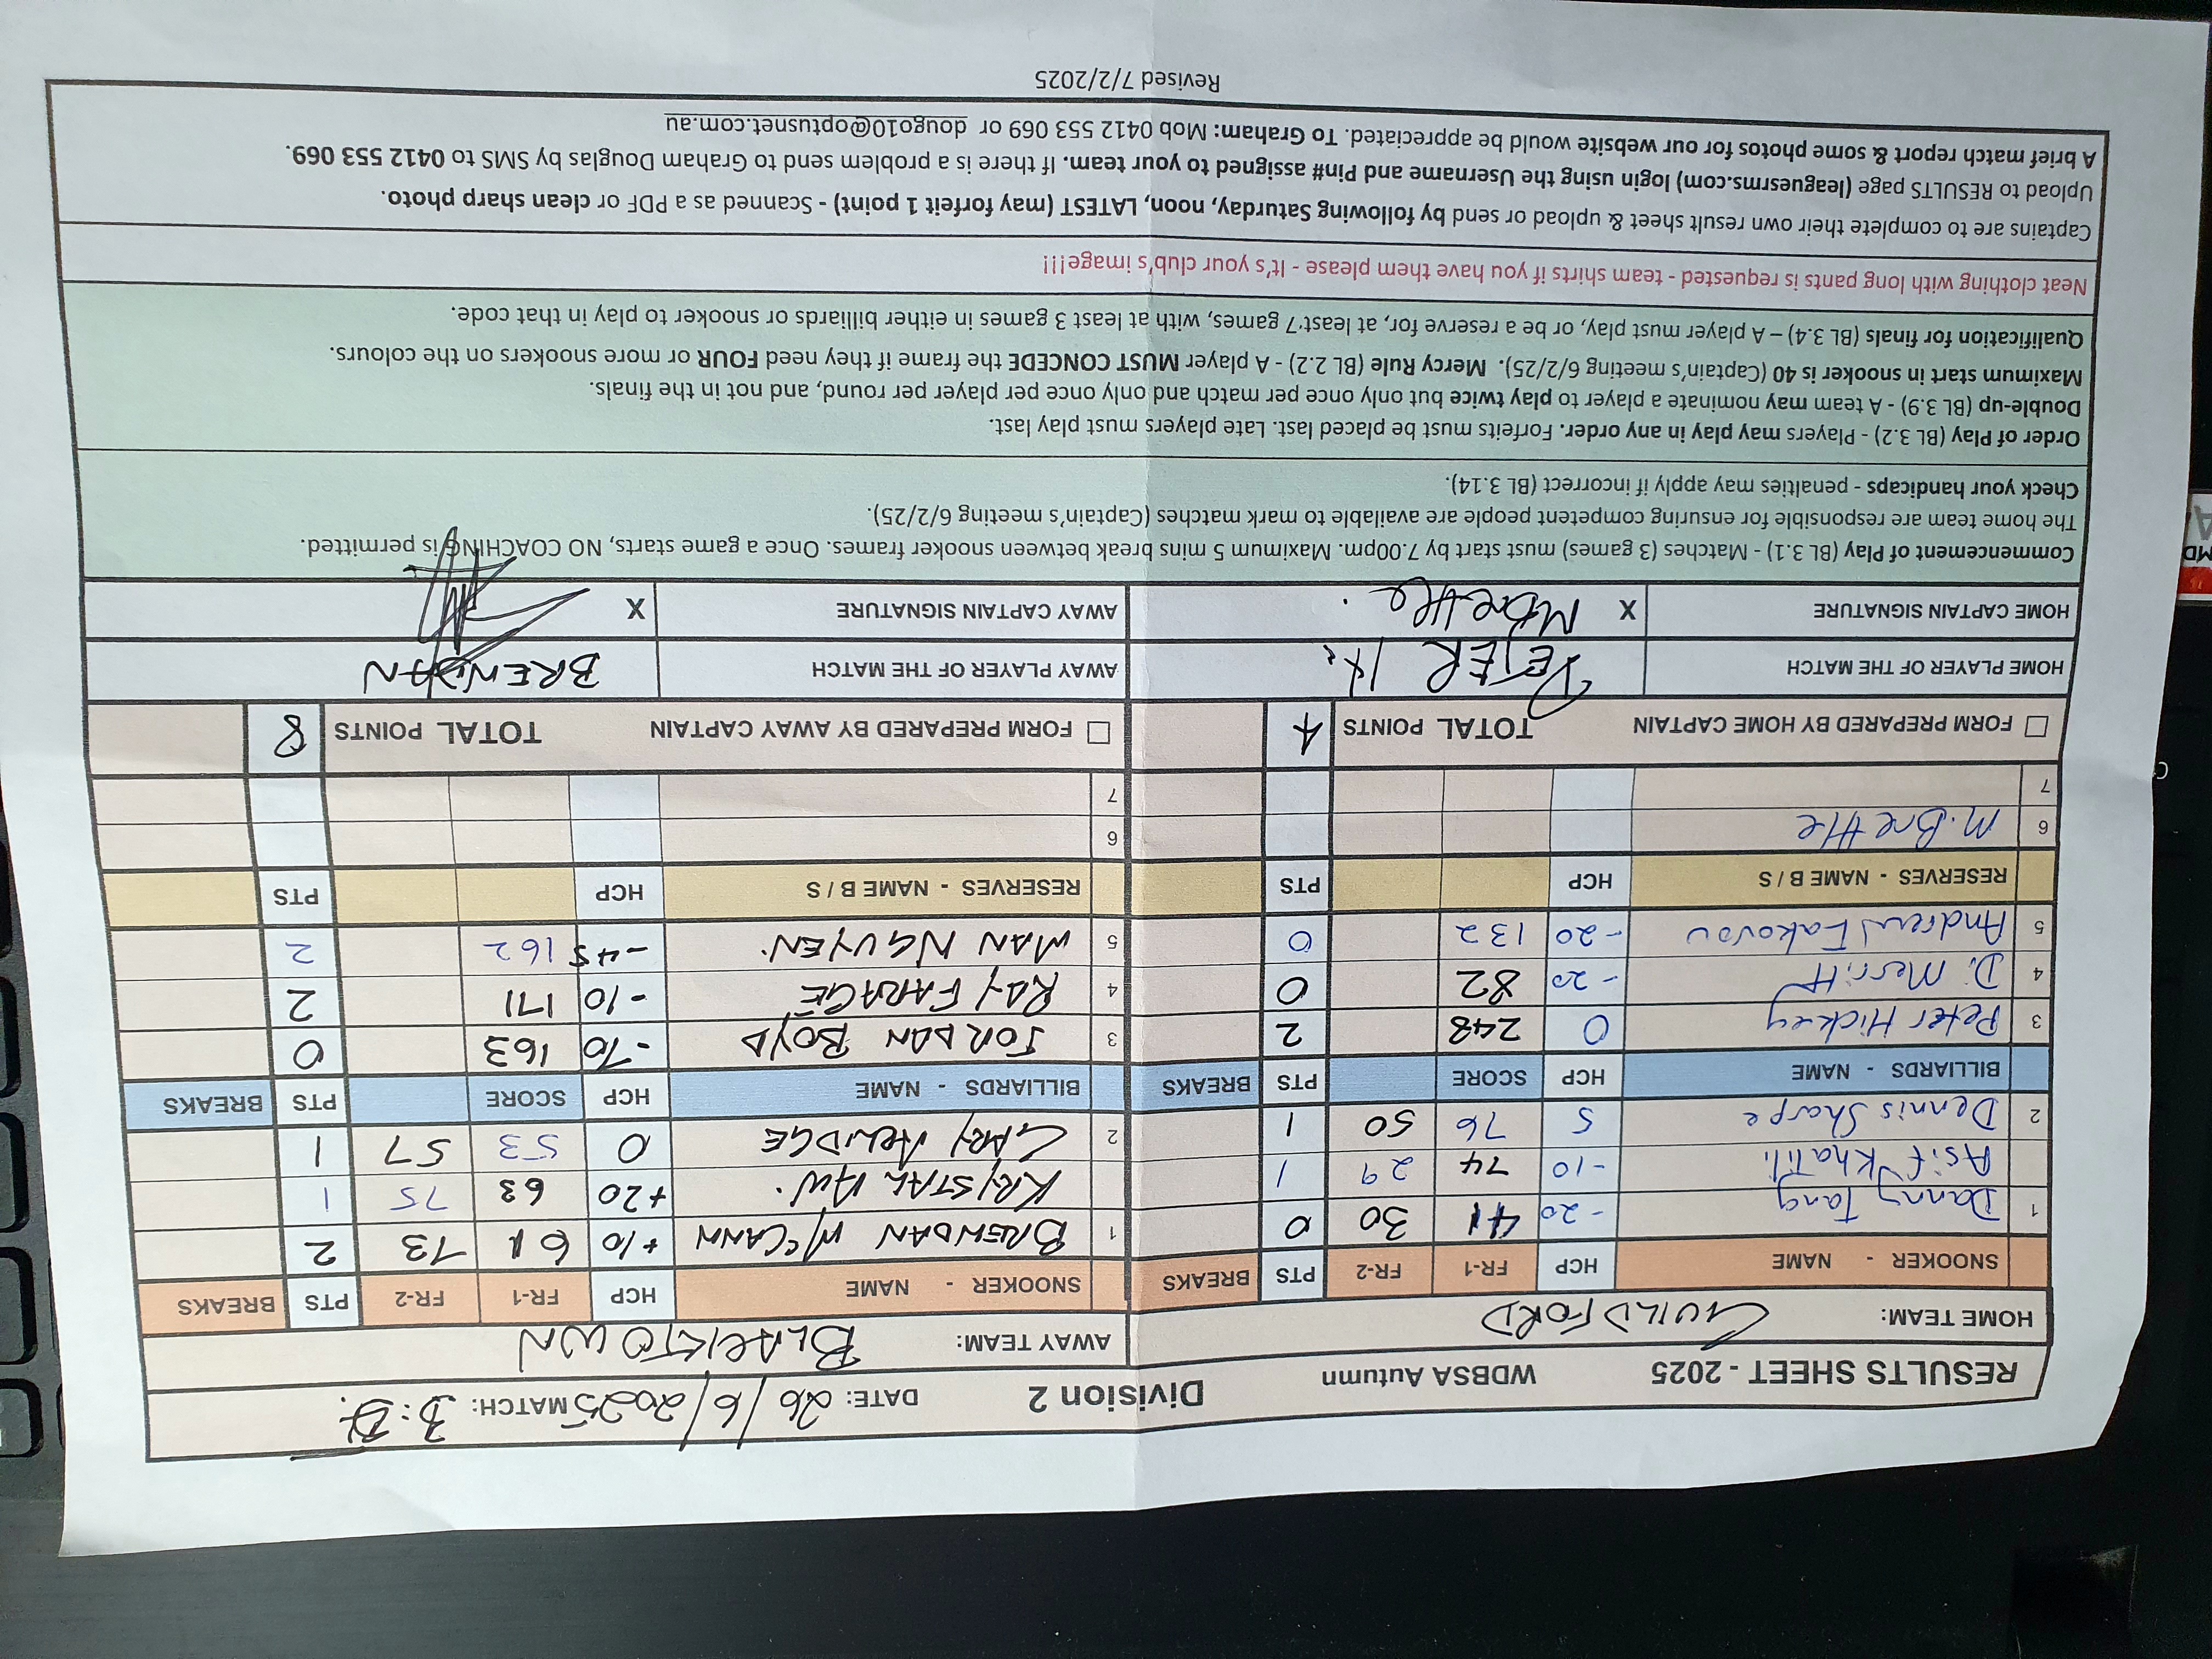 RESULTS SHEET - 2025 WDBSA Autumn Division 2 DATE: 26/6/2025 MATCH: 3:
HOME TEAM: GUILDFORD AWAY TEAM: BLACKTOWN
SNOOKER - NAME HCP FR-1 FR-2 PTS BREAKS SNOOKER - NAME HCP FR-1 FR-2 PTS BREAKS
1 Danny Tang -20 41 30 0 1 BRENDAN McCANN +10 61 73 2
Asif Khalili -10 74 29 1 KRYSTAL AW. +20 63 75 1
2 Dennis Sharpe 5 76 50 1 2 GARY ALIDGE 0 53 57 1
BILLIARDS - NAME HCP SCORE PTS BREAKS BILLIARDS - NAME HCP SCORE PTS BREAKS
3 Peter Hickey 0 248 2 3 JORDAN BOYD -70 163 0
4 D. Merritt -20 82 0 4 RAY FARAGE -10 171 2
5 Andrew -20 132 0 5 MAN NGUYEN. -45 162 2
RESERVES - NAME B / S HCP PTS RESERVES - NAME B / S HCP PTS
6 M. Brettle 6
7 7
FORM PREPARED BY HOME CAPTAIN TOTAL POINTS 4 FORM PREPARED BY AWAY CAPTAIN TOTAL POINTS 8
HOME PLAYER OF THE MATCH PETER AWAY PLAYER OF THE MATCH BRENDAN
HOME CAPTAIN SIGNATURE X MBrettle. AWAY CAPTAIN SIGNATURE X
Commencement of Play (BL 3.1) - Matches (3 games) must start by 7.00pm. Maximum 5 mins break between snooker frames. Once a game starts, NO COACHING is permitted.
The home team are responsible for ensuring competent people are available to mark matches (Captain's meeting 6/2/25).
Check your handicaps - penalties may apply if incorrect (BL 3.14).
Order of Play (BL 3.2) - Players may play in any order. Forfeits must be placed last. Late players must play last.
Double-up (BL 3.9) - A team may nominate a player to play twice but only once per match and only once per player per round, and not in the finals.
Maximum start in snooker is 40 (Captain's meeting 6/2/25). Mercy Rule (BL 2.2) - A player MUST CONCEDE the frame if they need FOUR or more snookers on the colours.
Qualification for finals (BL 3.4) – A player must play, or be a reserve for, at least 7 games, with at least 3 games in either billiards or snooker to play in that code.
Neat clothing with long pants is requested - team shirts if you have them please - It's your club's image!!!
Captains are to complete their own result sheet & upload or send by following Saturday, noon, LATEST (may forfeit 1 point) - Scanned as a PDF or clean sharp photo.
Upload to RESULTS page (leaguesrms.com) login using the Username and Pin# assigned to your team. If there is a problem send to Graham Douglas by SMS to 0412 553 069.
A brief match report & some photos for our website would be appreciated. To Graham: Mob 0412 553 069 or dougo10@optusnet.com.au
Revised 7/2/2025